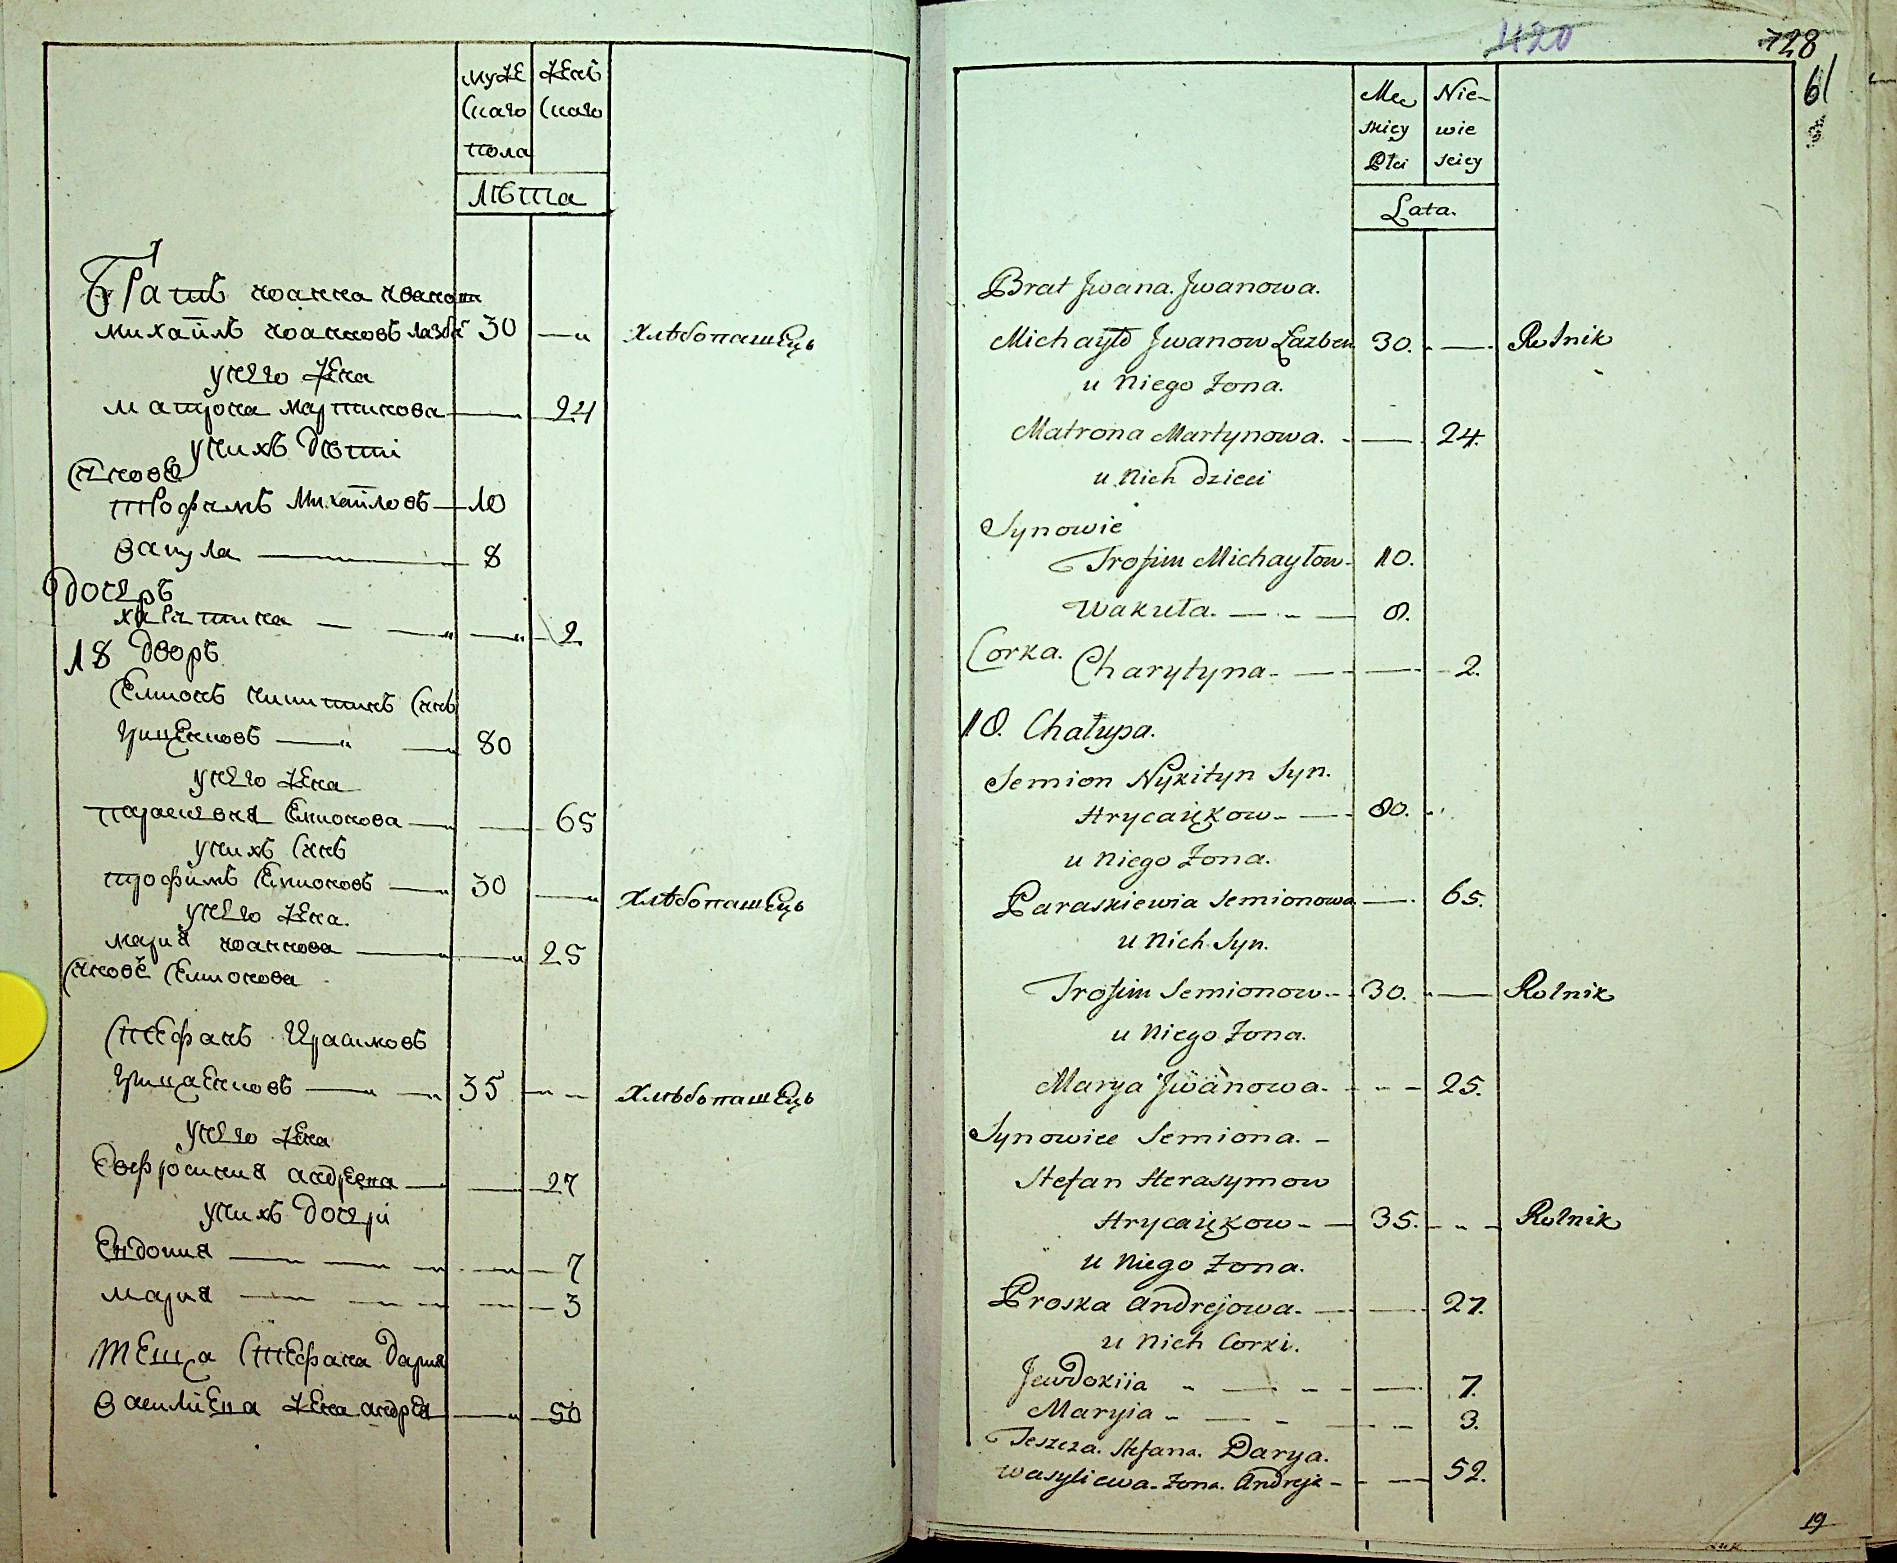 муже женс
скаго скаго
пола
лѣта
Братъ иоанна иванова
михайлъ иоанновъ лазбен 30 — „ хлѣбопашецъ
у него жена
матрона мартинова — 24
у нихъ дѣти
Синовѣ
трофимъ Михайловъ — 10
вакула — 8
дочеръ
харитина — — „ — „ 2
18 дворъ
Семионъ никитинъ Синъ
гриценковъ — „ — 80
у него жена
параскевия Семионова — — 65
у нихъ Синъ
трофимъ Семионовъ — 30 — хлѣбопашецъ
у него жена.
мария иоаннова — — „ 25
Синовѣ Семионова
Стефанъ Герасимовъ
грицаенковъ — „ — „ 35 — – хлѣбопашецъ
у него жена
Евфросиния андреева — — 27
у нихъ дочери
Евдокия — — — — „ — 7
мария — — — — — 3
теща Стефана дария
василиева жена андрея — „ — 50
420
728
61
Męs Nie-
skiey wie
Płci sciey
Lata.
Brat Jwana Jwanowa.
Michayło Jwanow Lazben 30. — Rolnik
u Niego Żona.
Matrona Martynowa. - — 24.
u Nich dzieci
Synowie
Trofim Michayłow - 10.
Wakuła. — - — 8.
Corka. Charytyna - — — 2.
18. Chałupa.
Semion Nykityn Syn.
Hrycaińkow - — 80. -
u Niego Żona.
Paraskiewia Semionowa — 65.
u Nich Syn.
Trofim Semionow - - 30. - — Rolnik
u Niego Żona.
Marya Jwanowa - - - — 25.
Synowiec Semiona. -
Stefan Herasymow
Hrycaińkow - — 35. - - - Rolnik
u Niego Żona.
Proska Andrejowa. - — — 27.
u Nich Corki.
Jewdokiia - — - - — 7.
Maryia - — - — - - 3.
Teszcza Stefana. Darya.
Wasyliewa. Żona. Andreja - - — 52.
19